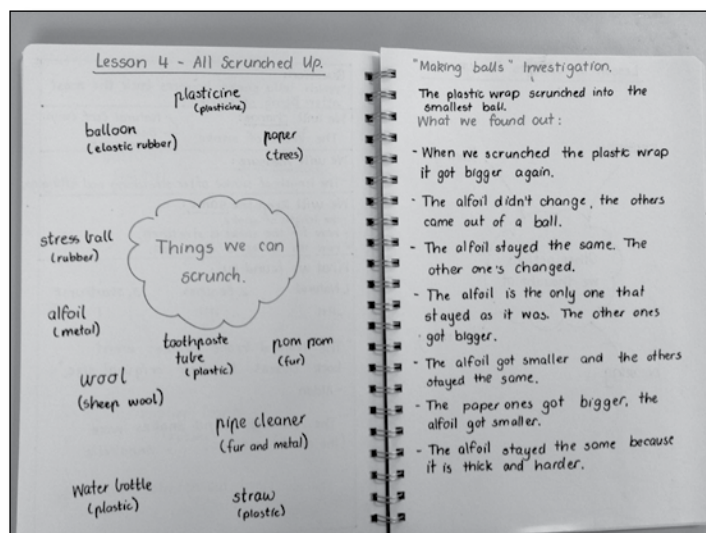 Lesson 4 - All Scrunched Up.
plasticine
(plasticine)
balloon
(elastic rubber)
paper
(trees)
Things we can
scrunch.
stress ball
(rubber)
alfoil
(metal)
toothpaste
tube
(plastic)
pom pom
(fur)
wool
(sheep wool)
pipe cleaner
(fur and metal)
Water bottle
(plastic)
straw
(plastic)
"Making balls" Investigation.
The plastic wrap scrunched into the
smallest ball.
What we found out:
- When we scrunched the plastic wrap
it got bigger again.
- The alfoil didn't change, the others
came out of a ball.
- The alfoil stayed the same. The
other one's changed.
- The alfoil is the only one that
stayed as it was. The other ones
got bigger.
- The alfoil got smaller and the others
stayed the same.
- The paper ones got bigger, the
alfoil got smaller.
- The alfoil stayed the same because
it is thick and harder.